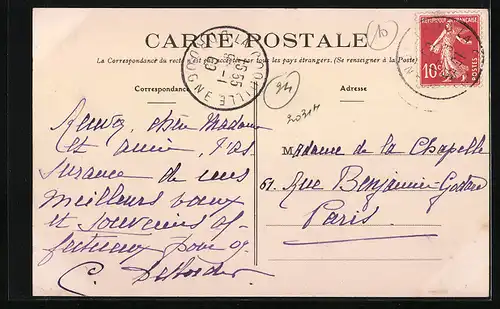 CARTE POSTALE
La Correspondance du recto n'est pas acceptée par tous les pays étrangers. (Se renseigner à la Poste)
Correspondance
Adresse
RÉPUBLIQUE FRANÇAISE
10c
POSTES
10
24
Recevez, chère Madame
et amie, l'as-
surance de mes
meilleurs vœux
et souvenirs af-
fectueux pour 09
C.
Madame de la Chapelle
61. Rue Benjamin-Godard
Paris